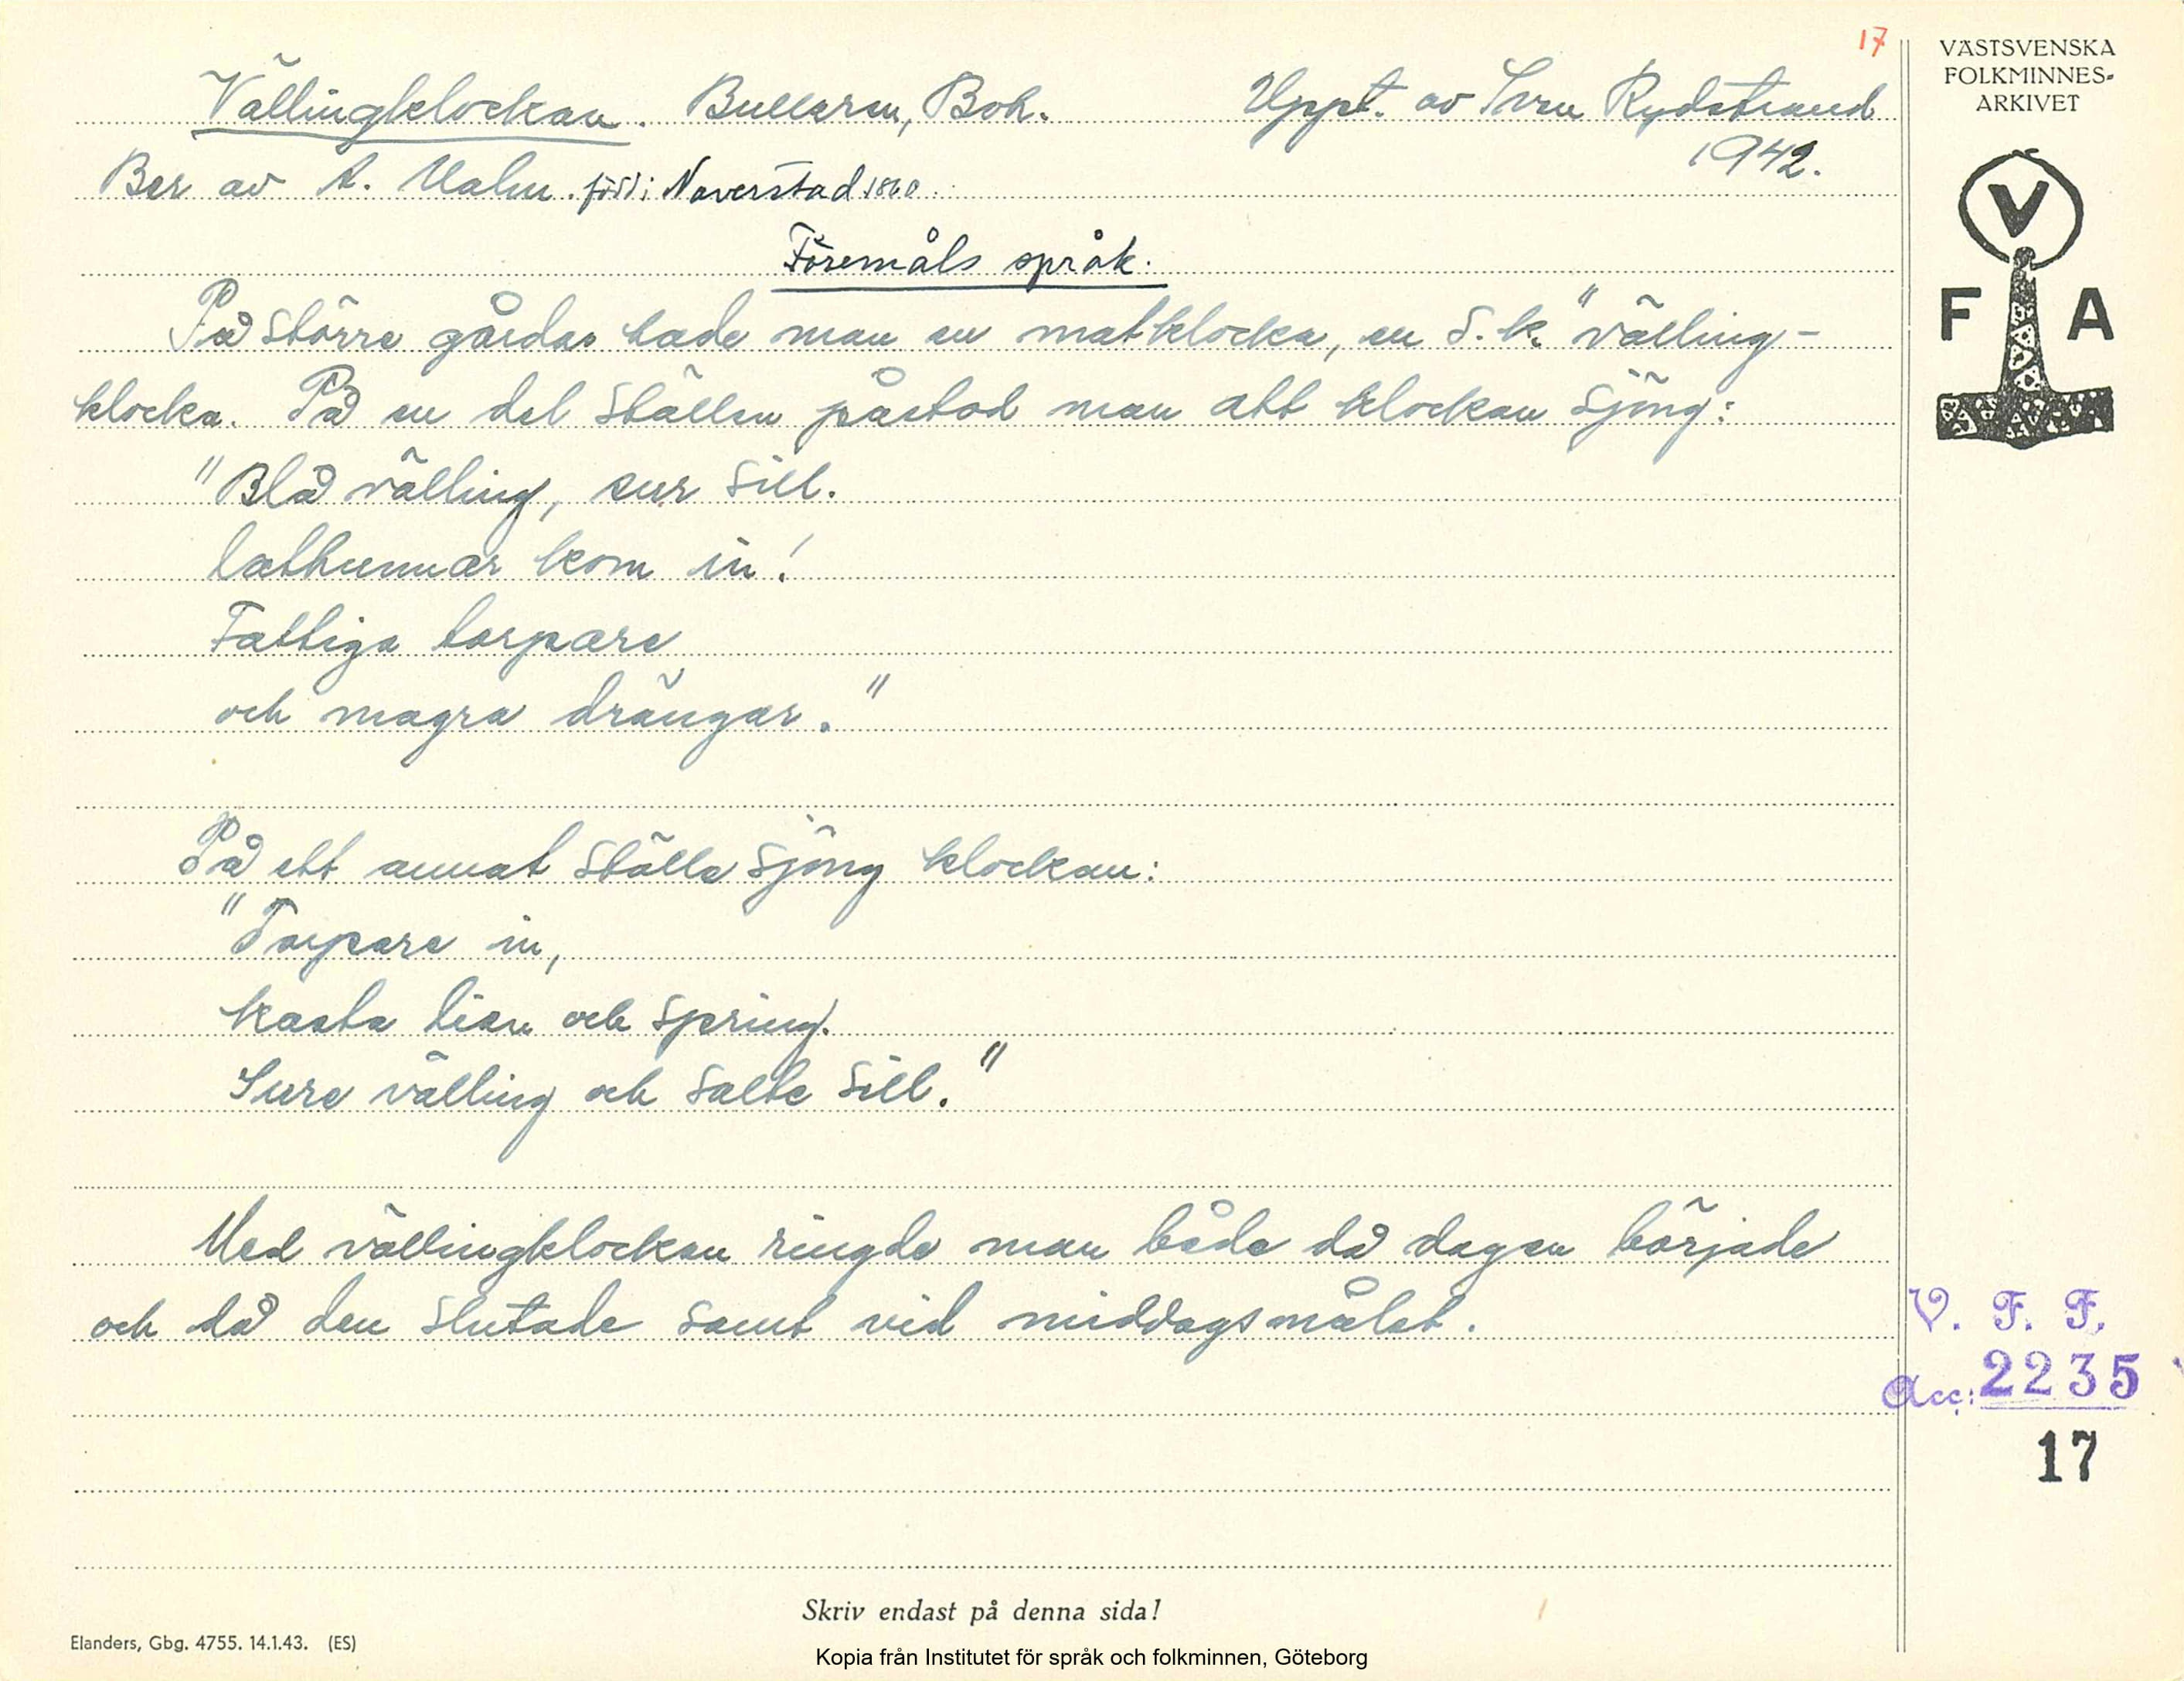 17
VÄSTSVENSKA
FOLKMINNES-
ARKIVET
Vällingklockan. Bullaren, Boh. Uppt. av Sven Rydstrand
1942.
Ber av A. Malm. född i Naverstad 1860.
V
F A
Föremåls språk.
På större gårdar hade man en matklocka, en s.k. "välling-
klocka. På en del ställen påstod man att klockan sjöng:
"Blå välling, sur sill.
lathunnar kom in!
Fattiga torpare
och magra drängar."
På ett annat ställe sjöng klockan:
"Torpare in,
kasta lien och spring.
Sure välling och salte sill."
Med vällingklockan ringde man både då dagen började
och då den slutade samt vid middagsmålet.
V. F. F.
Acc: 2235
17
Skriv endast på denna sida!
Elanders, Gbg. 4755. 14.1.43. (ES)
Kopia från Institutet för språk och folkminnen, Göteborg